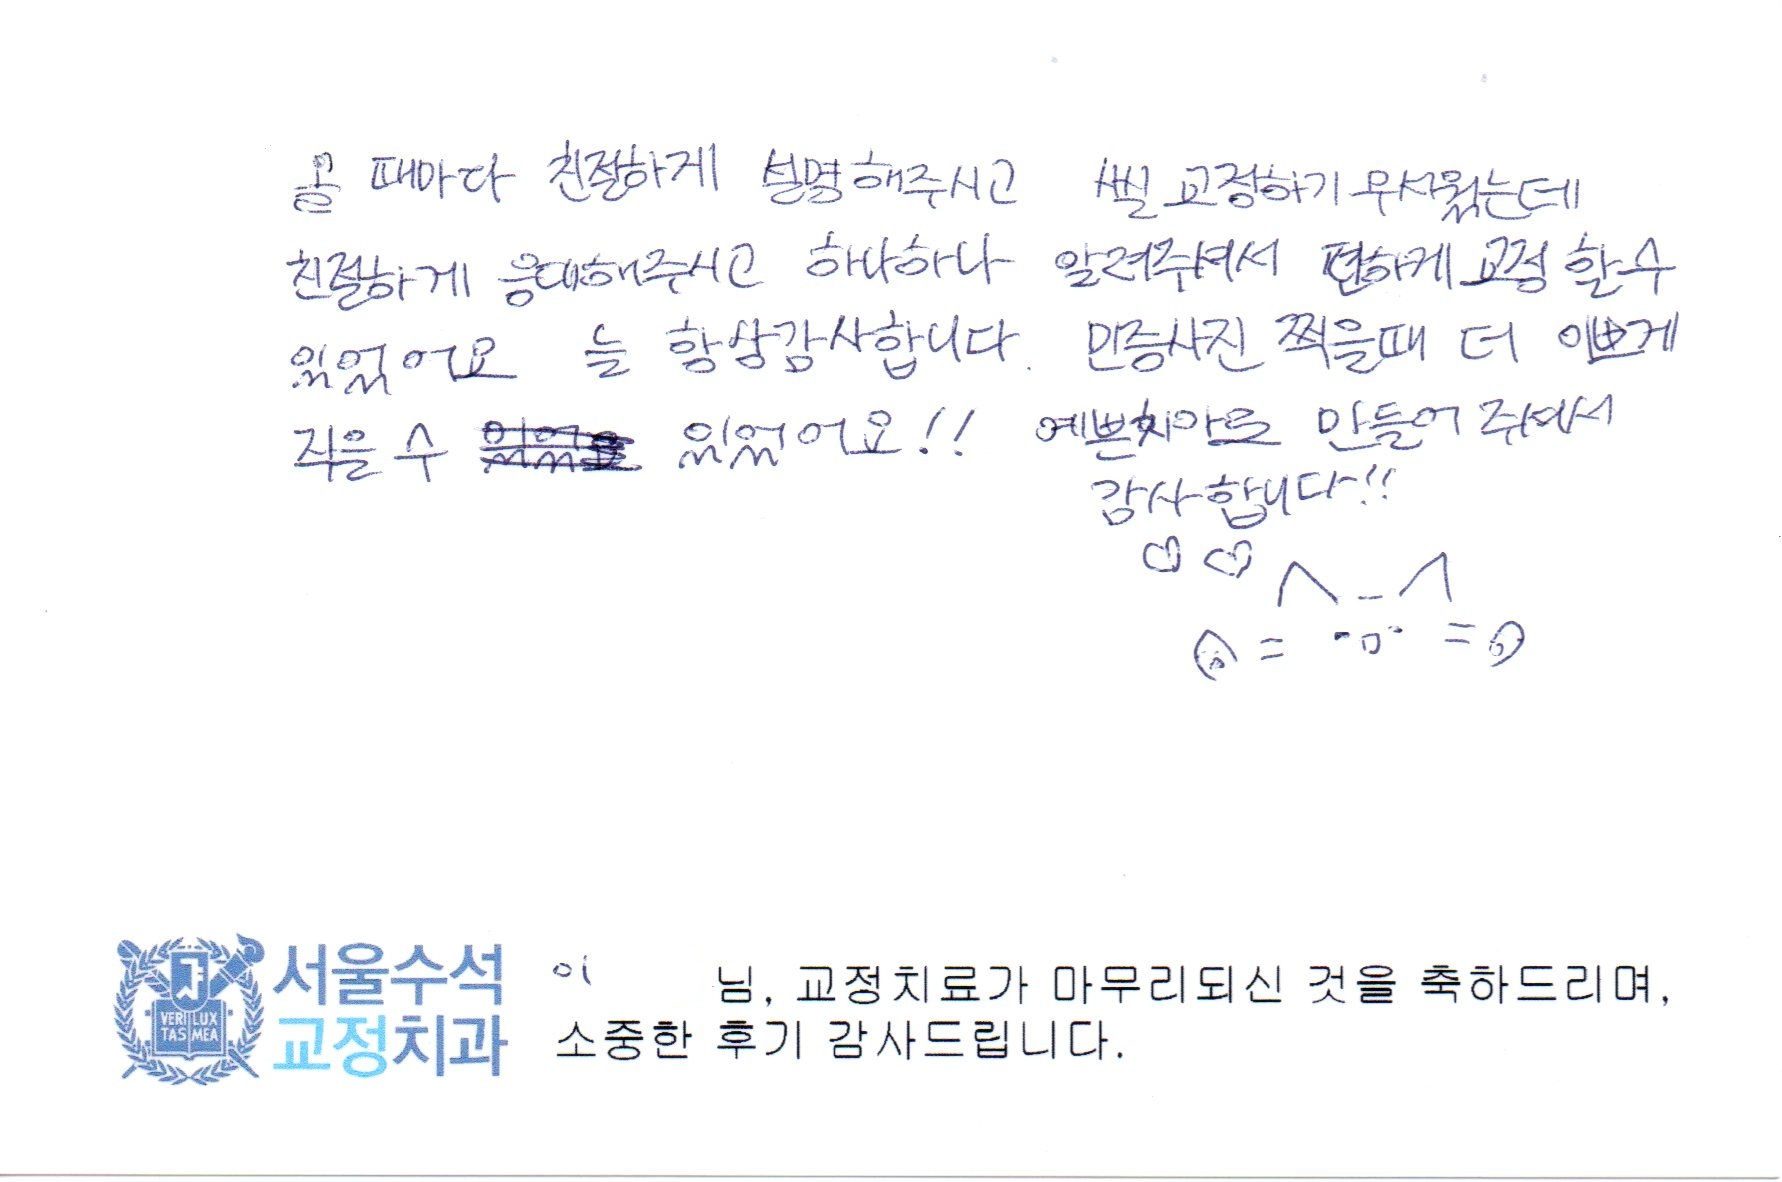 올 때마다 친절하게 설명해주시고 씰 교정하기 무서웠는데
친절하게 응대해주시고 하나하나 알려주셔서 편하게 교정 할 수
있었어요 늘 항상감사합니다. 인증사진 찍을때 더 이쁘게
직을 수 있었어요!! 예쁜치아로 만들어 주셔서
감사합니다!!
서울수석
교정치과
VERI LUX
TAS MEA
이 님, 교정치료가 마무리되신 것을 축하드리며,
소중한 후기 감사드립니다.